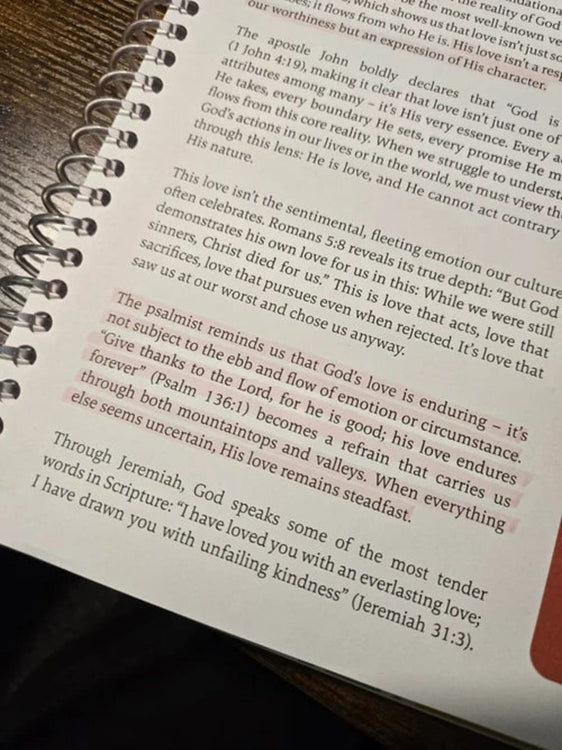 the reality of God
be the most well-known
which shows us that love isn't just
it flows from who He is. His love isn't a
our worthiness but an expression of His character.
The apostle John boldly declares that "God is
(1 John 4:19), making it clear that love isn't just one of
attributes among many – it's His very essence. Every
He takes, every boundary He sets, every promise He
flows from this core reality. When we struggle to
God's actions in our lives or in the world, we must view
through this lens: He is love, and He cannot act contrary
His nature.
This love isn't the sentimental, fleeting emotion our culture
often celebrates. Romans 5:8 reveals its true depth: "But God
demonstrates his own love for us in this: While we were still
sinners, Christ died for us." This is love that acts, love that
sacrifices, love that pursues even when rejected. It's love that
saw us at our worst and chose us anyway.
The psalmist reminds us that God's love is enduring – it's
not subject to the ebb and flow of emotion or circumstance.
"Give thanks to the Lord, for he is good; his love endures
forever" (Psalm 136:1) becomes a refrain that carries us
through both mountaintops and valleys. When everything
else seems uncertain, His love remains steadfast.
Through Jeremiah, God speaks some of the most tender
words in Scripture: "I have loved you with an everlasting love;
I have drawn you with unfailing kindness" (Jeremiah 31:3).